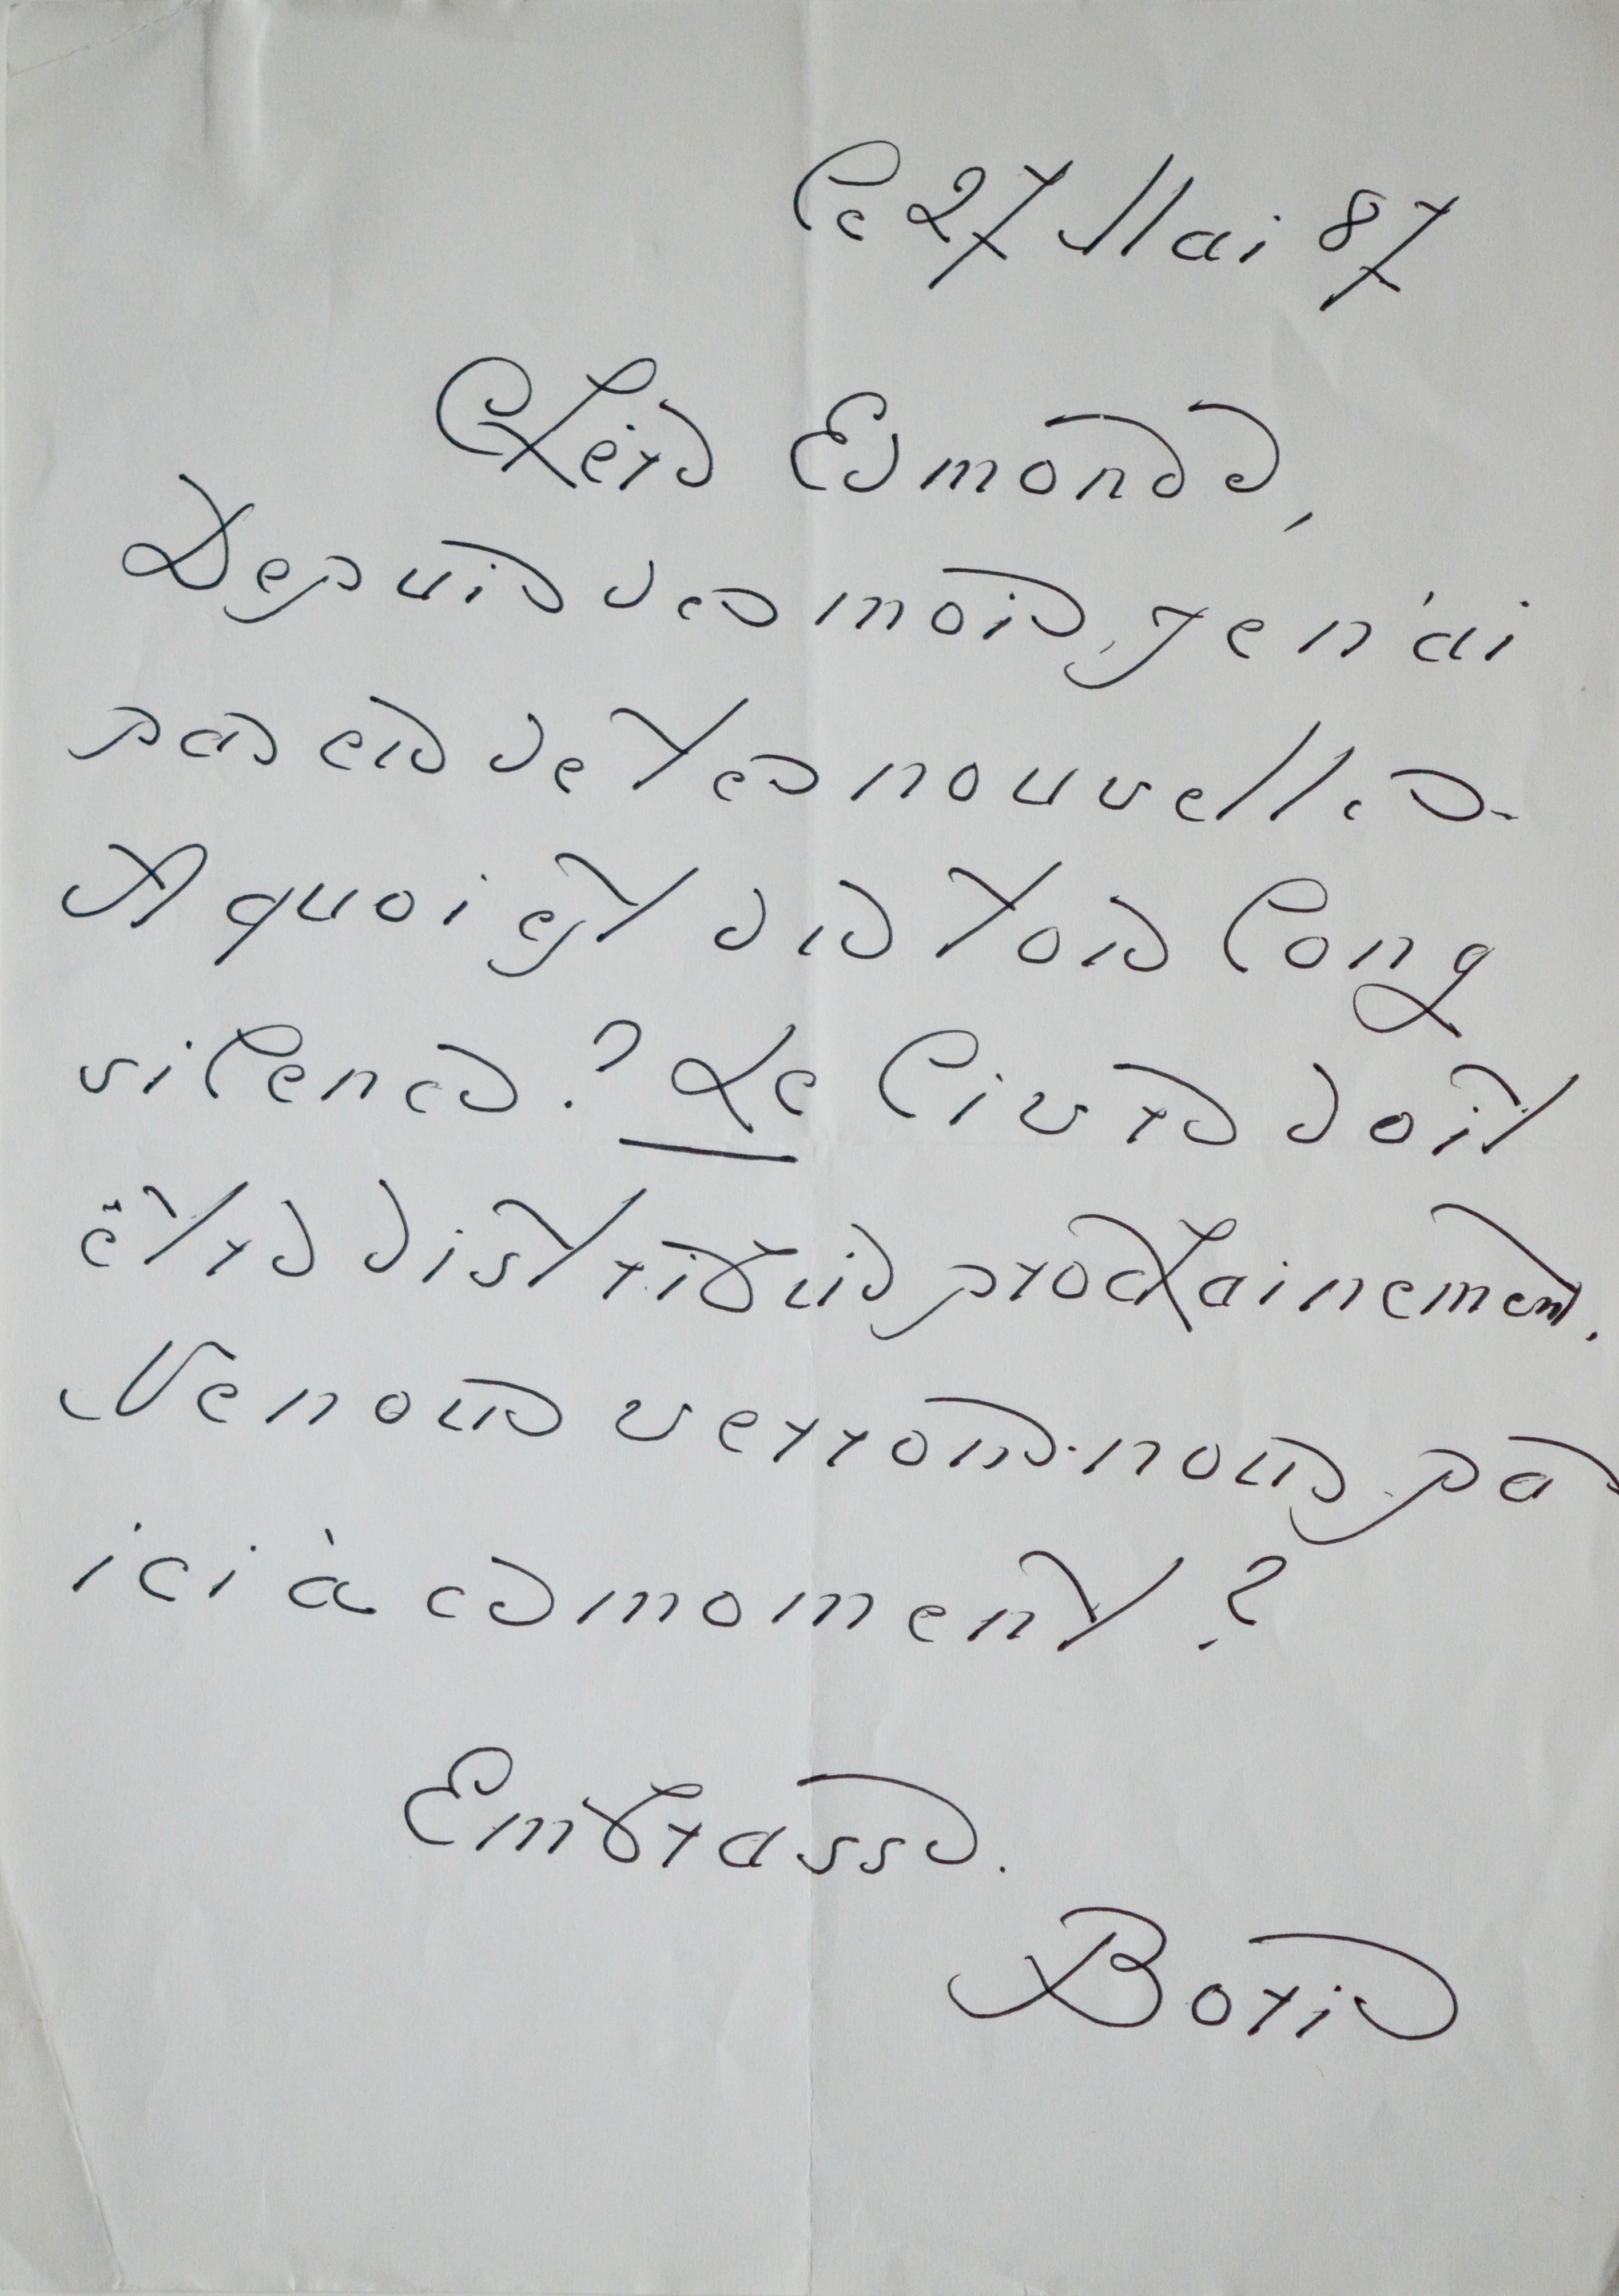 le 27 Mai 87
Chère Edmonde,
Depuis des mois, je n'ai
pas eu de tes nouvelles.
A quoi est dû ton long
silence? Le livre doit
être distribué prochainement.
Ne nous verrons-nous pas
ici à ce moment?
Embrasse.
Boris